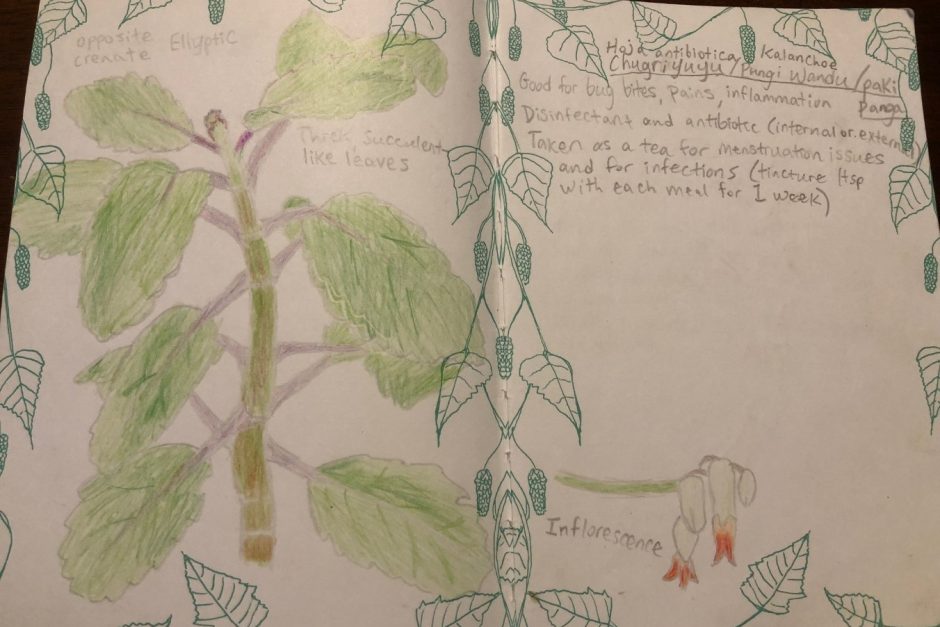 opposite Ellyptic
crenate
Thick, Succulent
like leaves
Hoja antibiotica, Kalanchoe
Chugriyuyu / Pungi Wandu / paki
panga
Good for bug bites, pains, inflammation
Disinfectant and antibiotic (internal or external)
Taken as a tea for menstruation issues
and for infections (tincture 1tsp
with each meal for 1 week)
Inflorescence